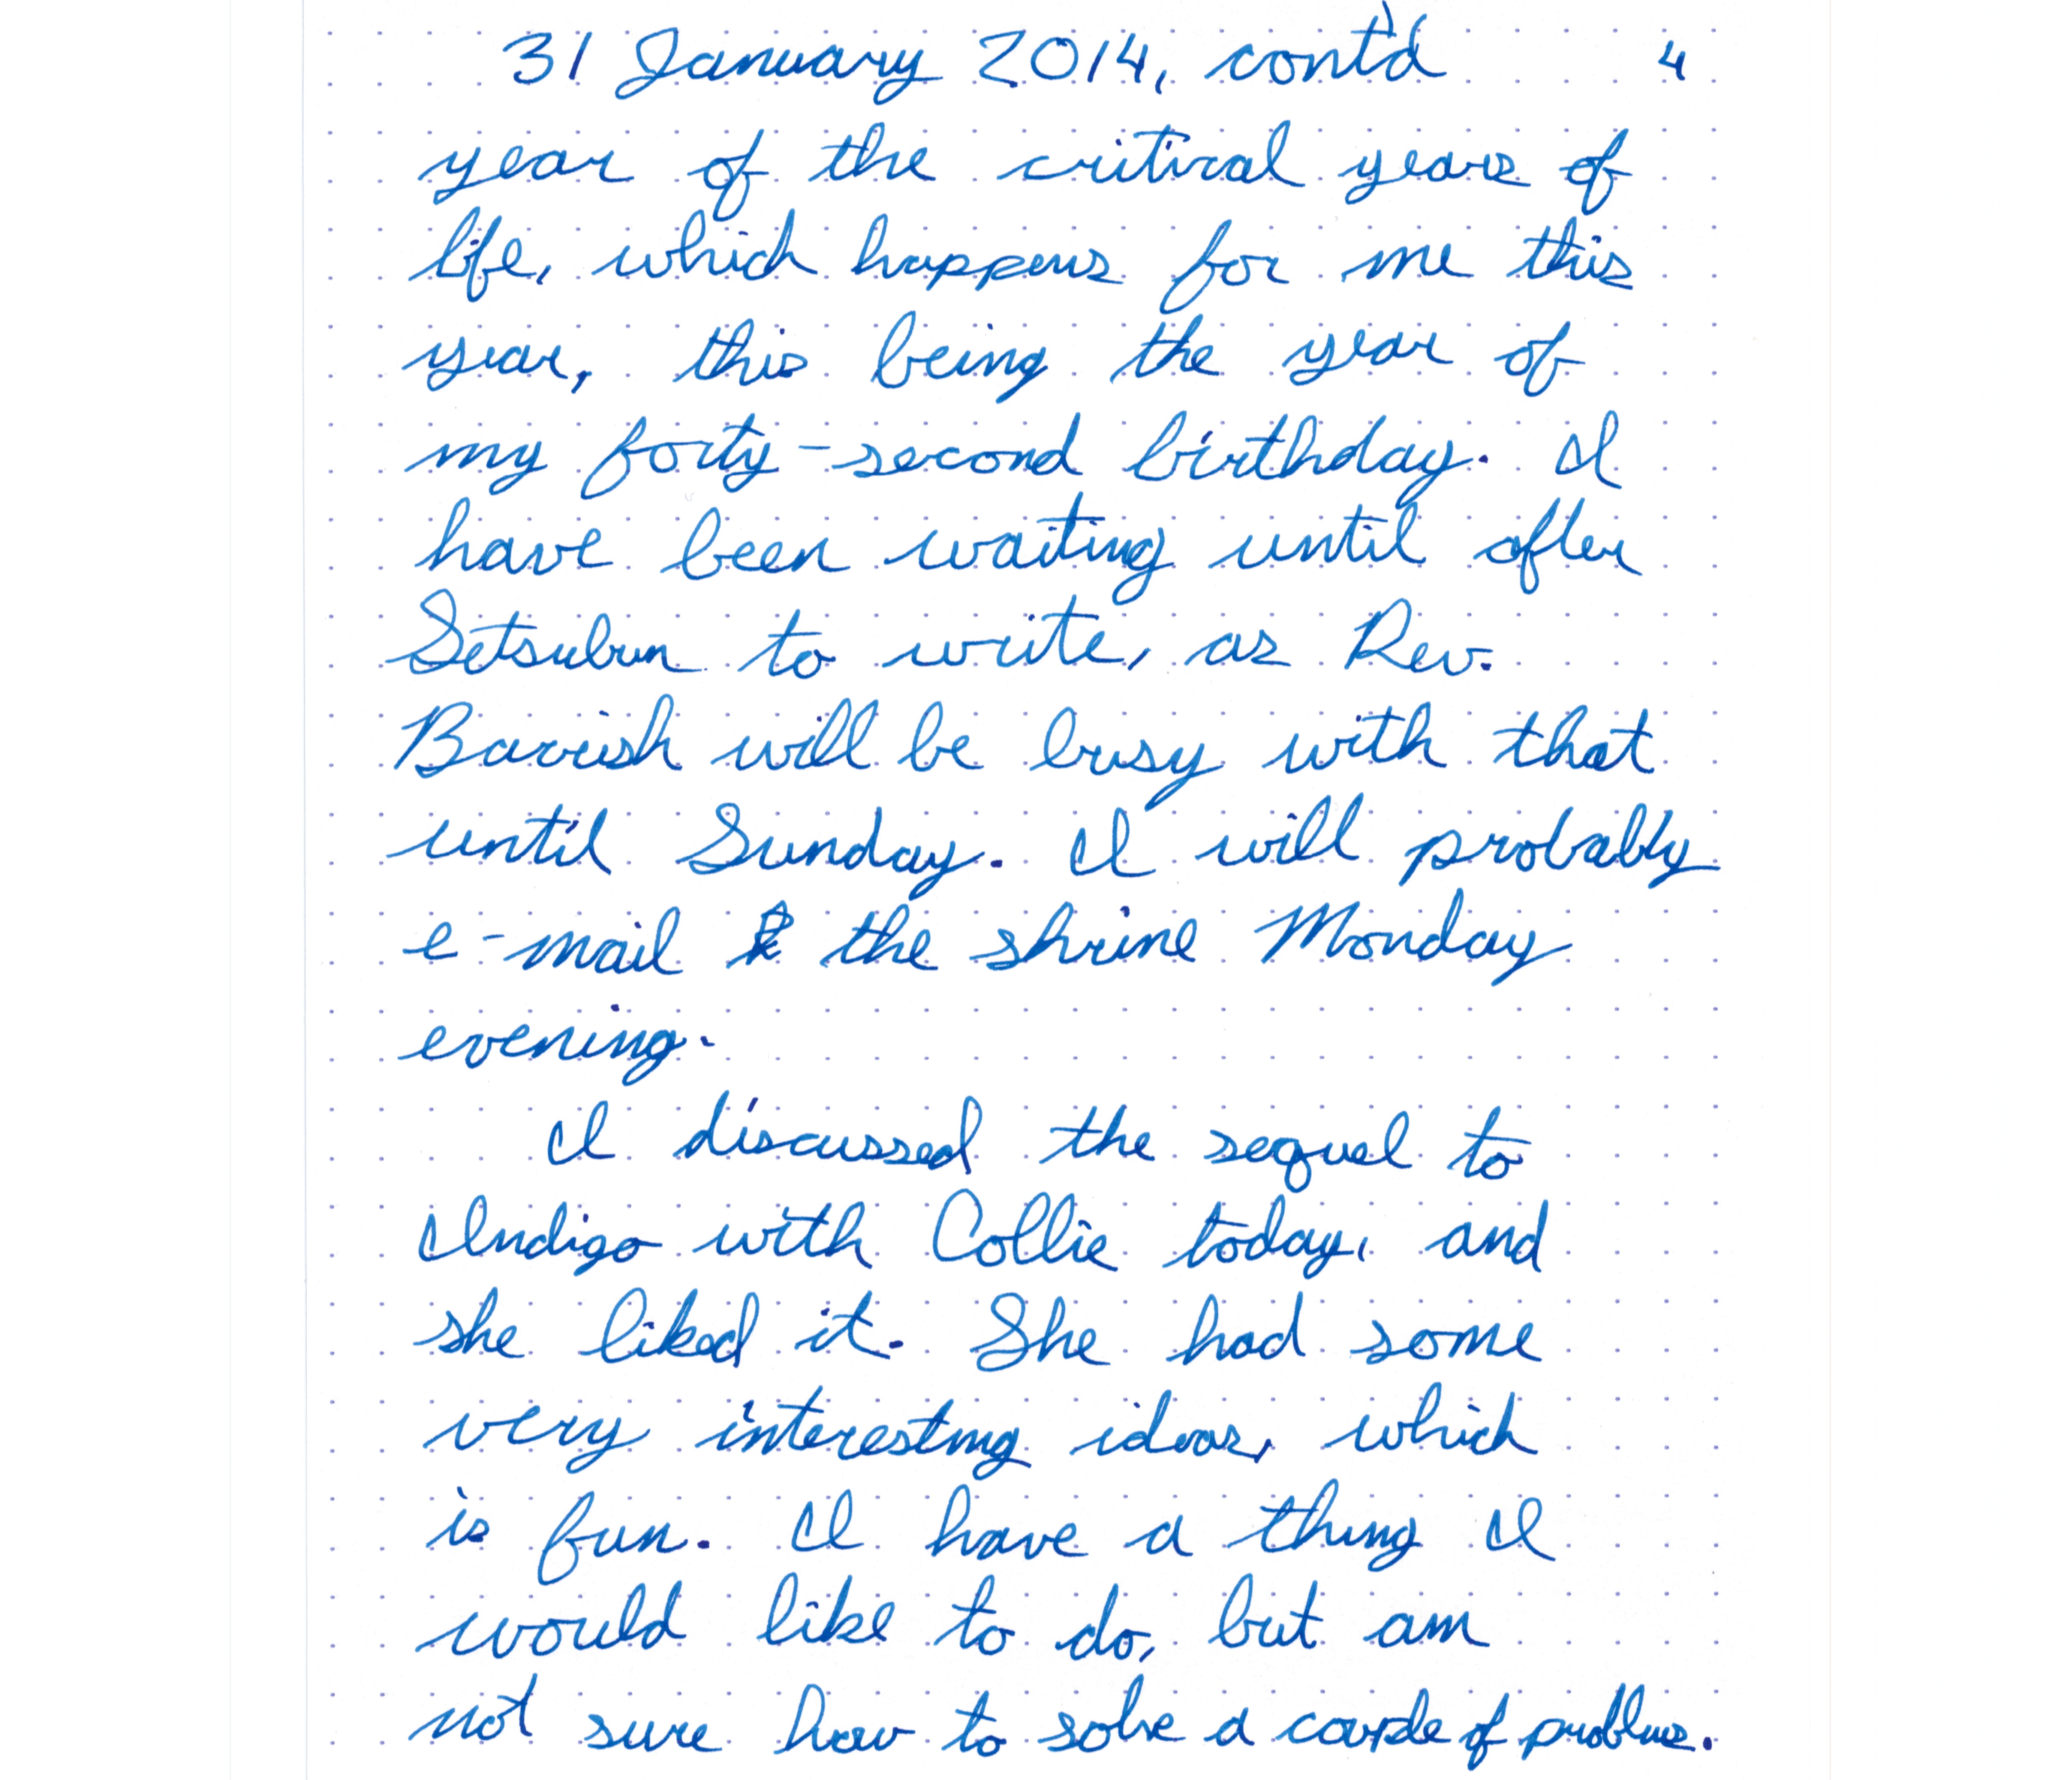 31 January 2014, cont'd 4
year of the critical years of
life, which happens for me this
year, this being the year of
my forty-second birthday. I
have been waiting until after
Setsubun to write, as Rev.
Barrish will be busy with that
until Sunday. I will probably
e-mail the shrine Monday
evening.
I discussed the sequel to
Indigo with Collie today, and
she liked it. She had some
very interesting ideas, which
is fun. I have a thing I
would like to do, but am
not sure how to solve a couple of problems.